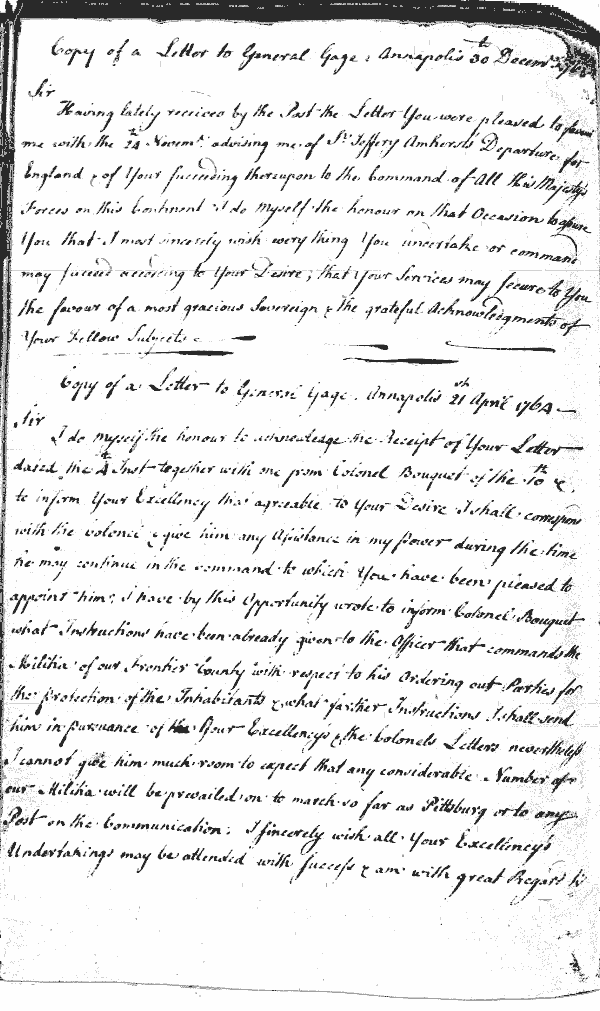 Copy of a Letter to General Gage. Annapolis 30th Decemr. 1763
Sir
Having lately received by the Post the Letter You were pleased to favour
me with the 24th Novemr. advising me of Sr. Jeffery Amhersts Departure for
England & of Your succeeding thereupon to the Command of All His Majestys
Forces on this Continent I do myself the honour on that Occasion to assure
You that I most sincerely wish every thing You undertake or command
may succeed according to Your Desire; that Your Services may secure to You
the favour of a most gracious Sovereign & the grateful Acknowledgments of
Your Fellow Subjects
Copy of a Letter to General Gage. Annapolis 21st April 1764
Sir
I do myself the honour to acknowledge the Receipt of Your Letter
dated the 4th Inst together with one from Colonel Bouquet of the 10th &
to inform Your Excellency that agreeable to Your Desire I shall correspond
with the Colonel & give him any Assistance in my power during the time
he may continue in the command to which You have been pleased to
appoint him; I have by this Opportunity wrote to inform Colonel Bouquet
what Instructions have been already given to the Officer that commands the
Militia of our Frontier County with respect to his Ordering out Parties for
the protection of the Inhabitants & what farther Instructions I shall send
him in pursuance of Your Excellencys & the Colonels Letters nevertheless
I cannot give him much room to expect that any considerable Number of
our Militia will be prevailed on to march so far as Pittsburg or to any
Post on the Communication. I sincerely wish all Your Excellency's
Undertakings may be attended with success & am with great Regard